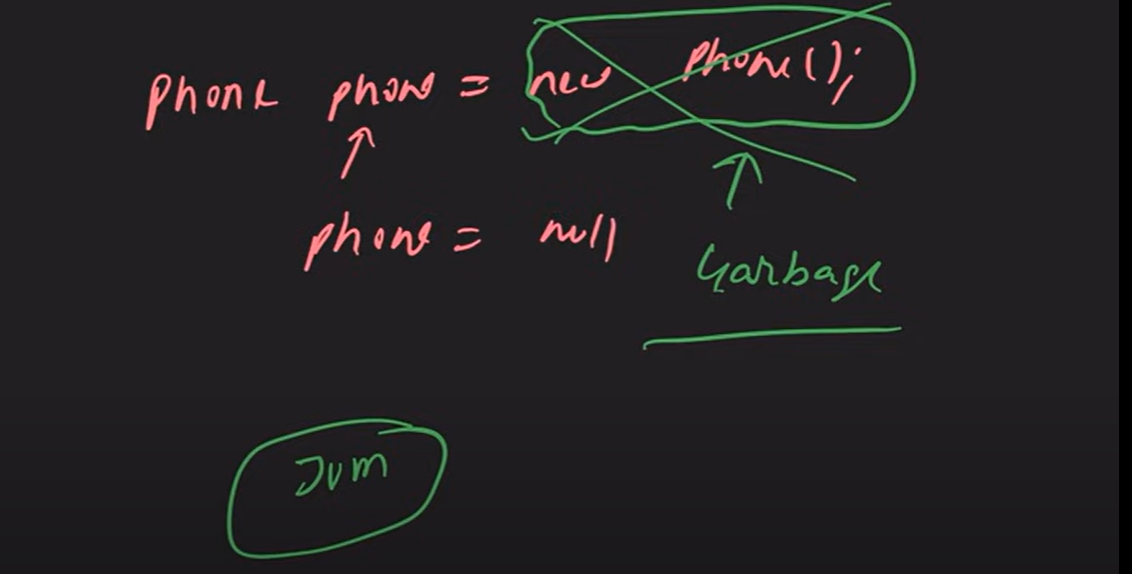 Phone phone = new Phone();
phone = null
Garbage
JVM